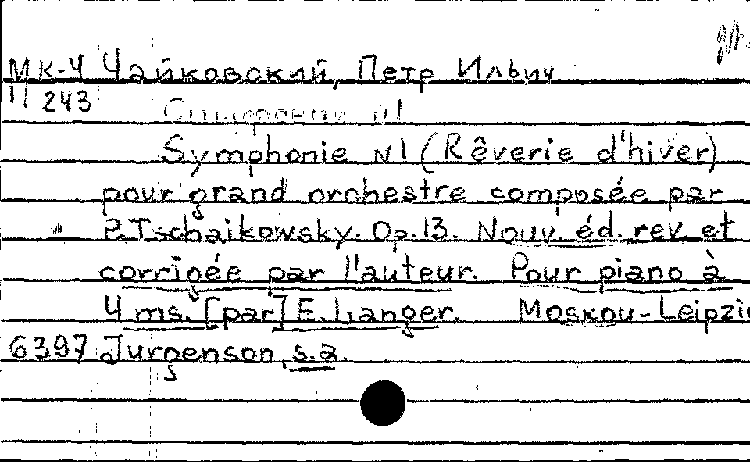 МК-4 Чайковский, Петр Ильич
11 243 Симфония N1
Symphonie N1 (Rêverie d'hiver)
pour grand orchestre composée par
P. Tschaikowsky. Op. 13. Nouv. éd. rev et
corrigée par l'auteur. Pour piano à
4 ms. [par] E. Langer. Moskou - Leipzig
6397 Jurgenson, s.a.